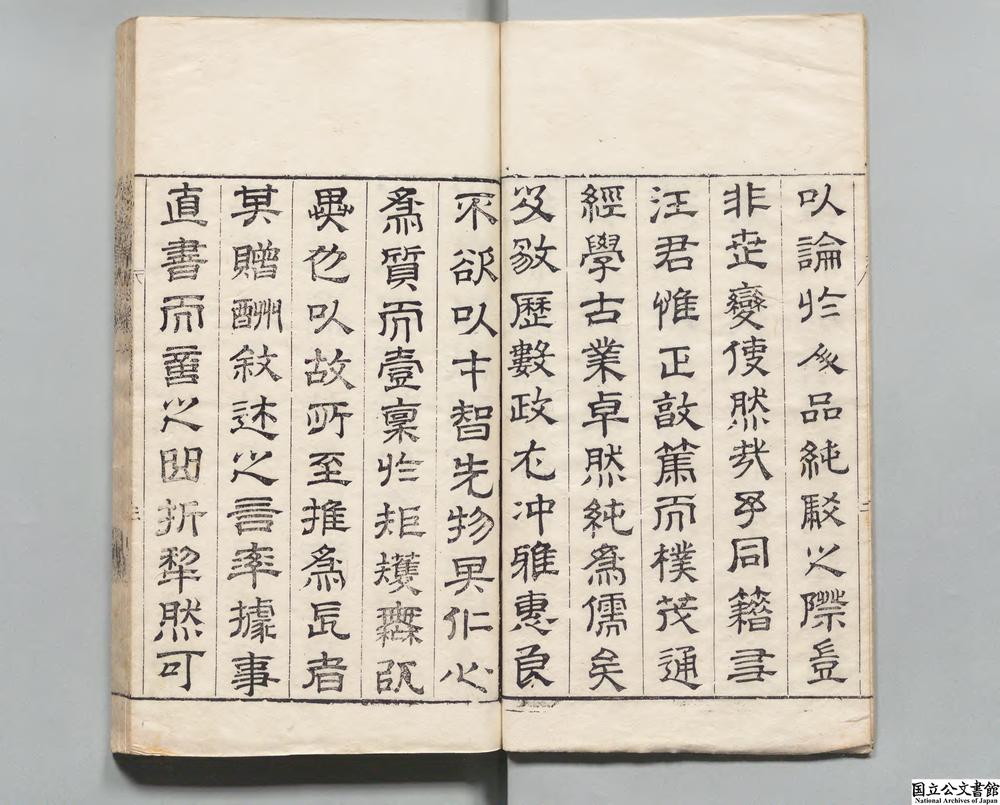 以論於人品純駁之際豈
非世變使然哉予同籍友
汪君惟正敦篤而樸茂通
經學古業卓然純為儒矣
及敭歷數政尤沖雅惠良
不欲以才智先物其仁心
為質而壹稟於矩矱無或
異也以故所至推為長者
其贈酬敘述之言率據事
直書而意之曲折犂然可
国立公文書館
National Archives of Japan